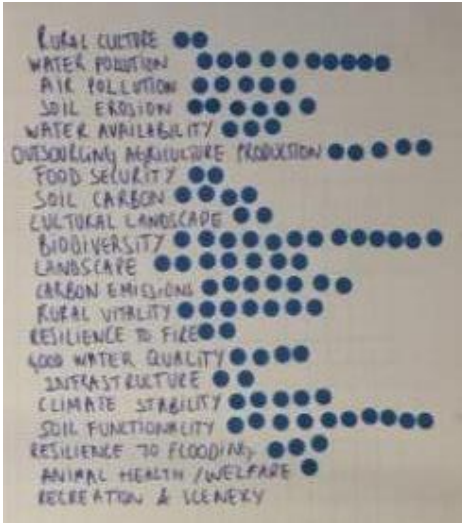 RURAL CULTURE
WATER POLLUTION
AIR POLLUTION
SOIL EROSION
WATER AVAILABILITY
OUTSOURCING AGRICULTURE PRODUCTION
FOOD SECURITY
SOIL CARBON
CULTURAL LANDSCAPE
BIODIVERSITY
LANDSCAPE
CARBON EMISSIONS
RURAL VITALITY
RESILIENCE TO FIRE
GOOD WATER QUALITY
INFRASTRUCTURE
CLIMATE STABILITY
SOIL FUNCTIONALITY
RESILIENCE TO FLOODING
ANIMAL HEALTH / WELFARE
RECREATION & SCENERY